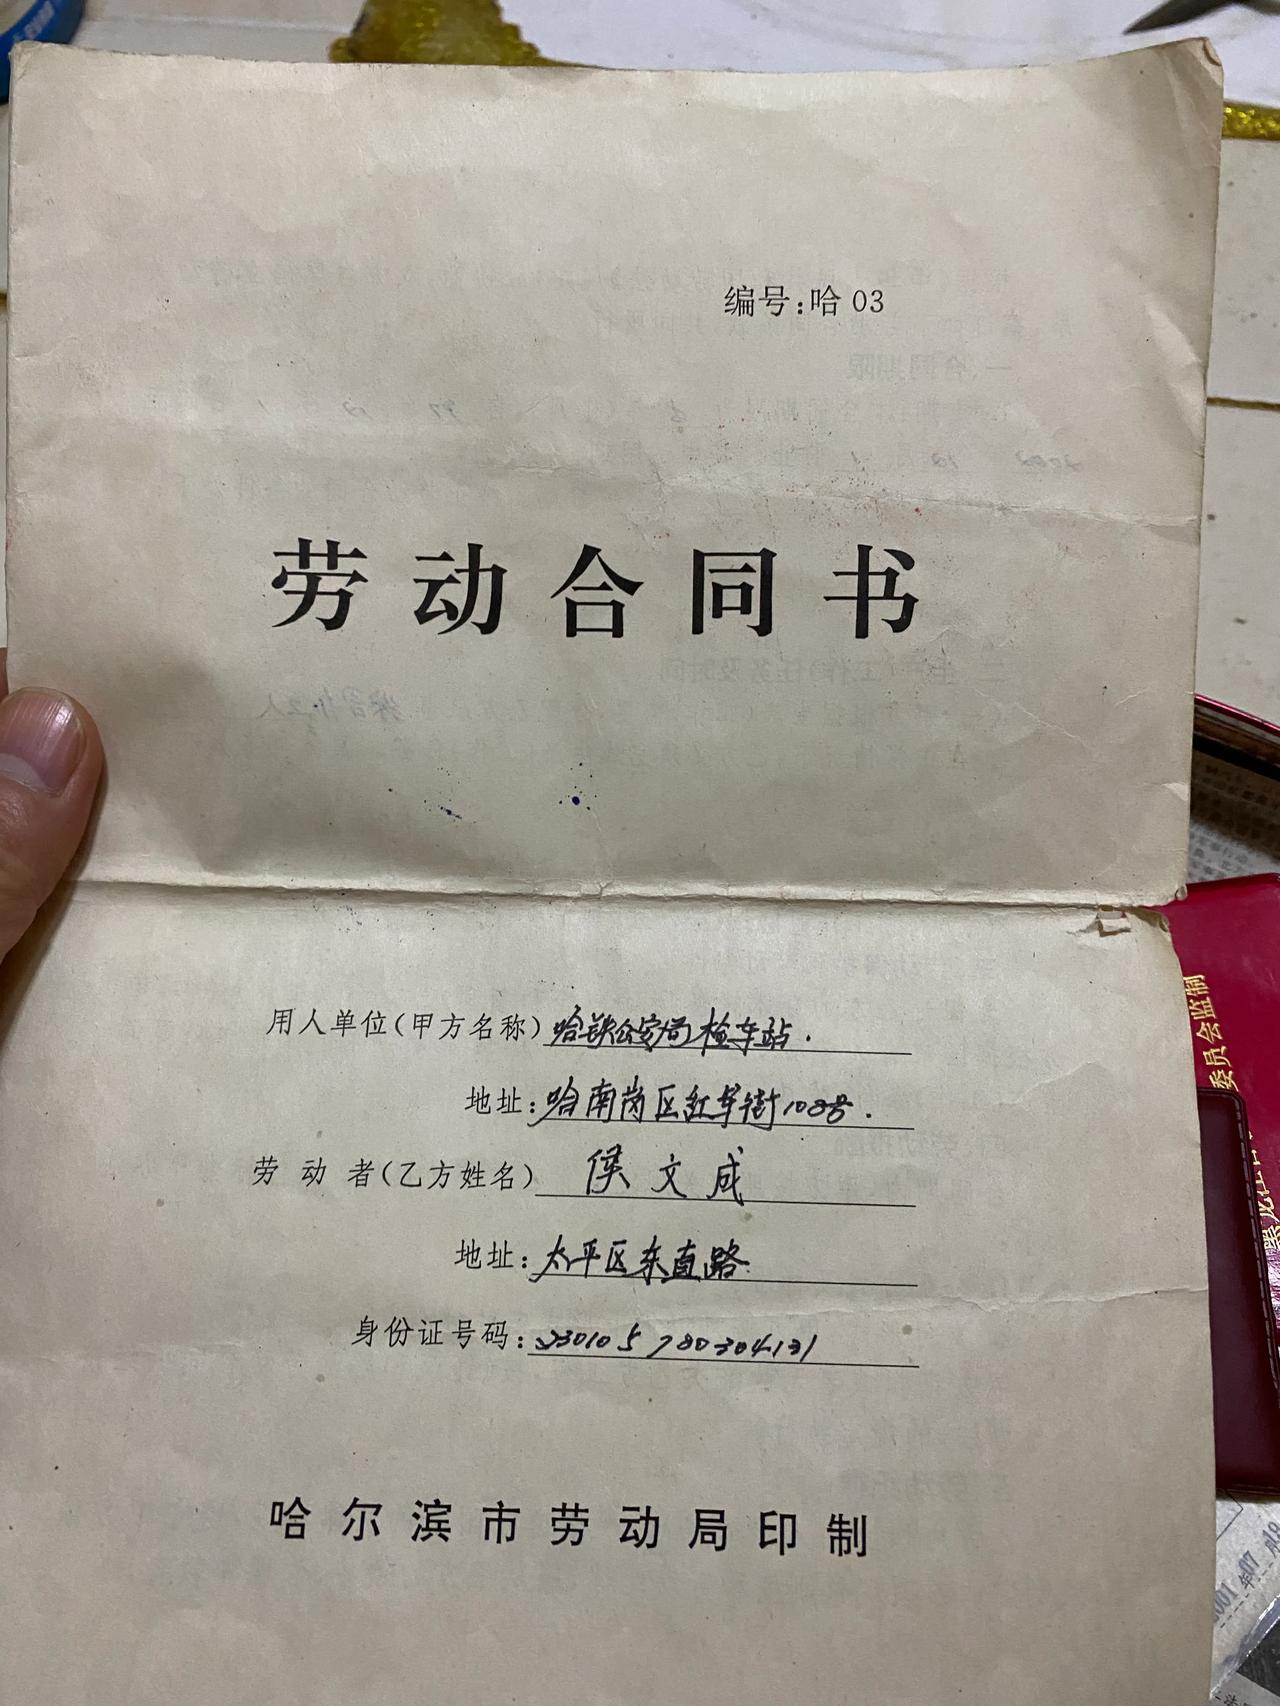 编号:哈 03
劳动合同书
用人单位(甲方名称)哈铁公安局检车站.
地址:哈南岗区红军街108号.
劳动者(乙方姓名) 侯文成
地址:太平区东直路
身份证号码:230105780304131
哈尔滨市劳动局印制
委员会监制